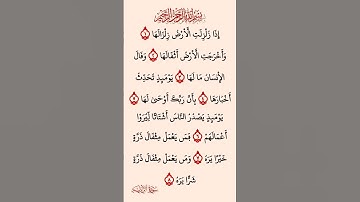 بسم الله الرحمن الرحيم
إِذَا زُلْزِلَتِ الْأَرْضُ زِلْزَالَهَا ١
وَأَخْرَجَتِ الْأَرْضُ أَثْقَالَهَا ٢ وَقَالَ
الْإِنْسَانُ مَا لَهَا ٣ يَوْمَئِذٍ تُحَدِّثُ
أَخْبَارَهَا ٤ بِأَنَّ رَبَّكَ أَوْحَىٰ لَهَا ٥
يَوْمَئِذٍ يَصْدُرُ النَّاسُ أَشْتَاتًا لِّيُرَوْا
أَعْمَالَهُمْ ٦ فَمَن يَعْمَلْ مِثْقَالَ ذَرَّةٍ
خَيْرًا يَرَهُ ٧ وَمَن يَعْمَلْ مِثْقَالَ ذَرَّةٍ
شَرًّا يَرَهُ ٨
سورة الزلزلة